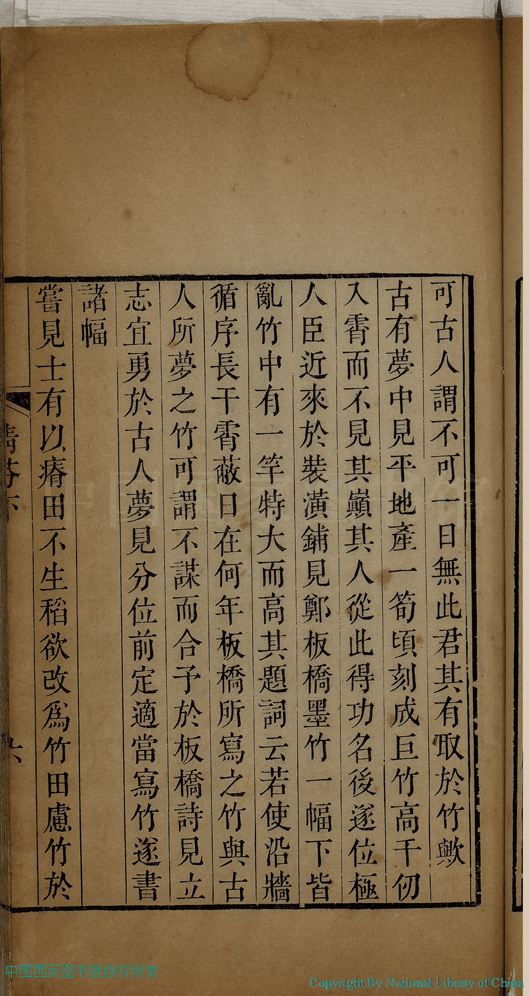 可古人謂不可一日無此君其有取於竹歟
古有夢中見平地產一筍頃刻成巨竹高千仞
入霄而不見其巔其人從此得功名後遂位極
人臣近來於裝潢鋪見鄭板橋墨竹一幅下皆
亂竹中有一竿特大而高其題詞云若使沿牆
循序長干霄蔽日在何年板橋所寫之竹與古
人所夢之竹可謂不謀而合予於板橋詩見立
志宜勇於古人夢見分位前定適當寫竹遂書
諸幅
嘗見士有以瘠田不生稻欲改為竹田慮竹於
清芬下
六
Copyright By National Library of China